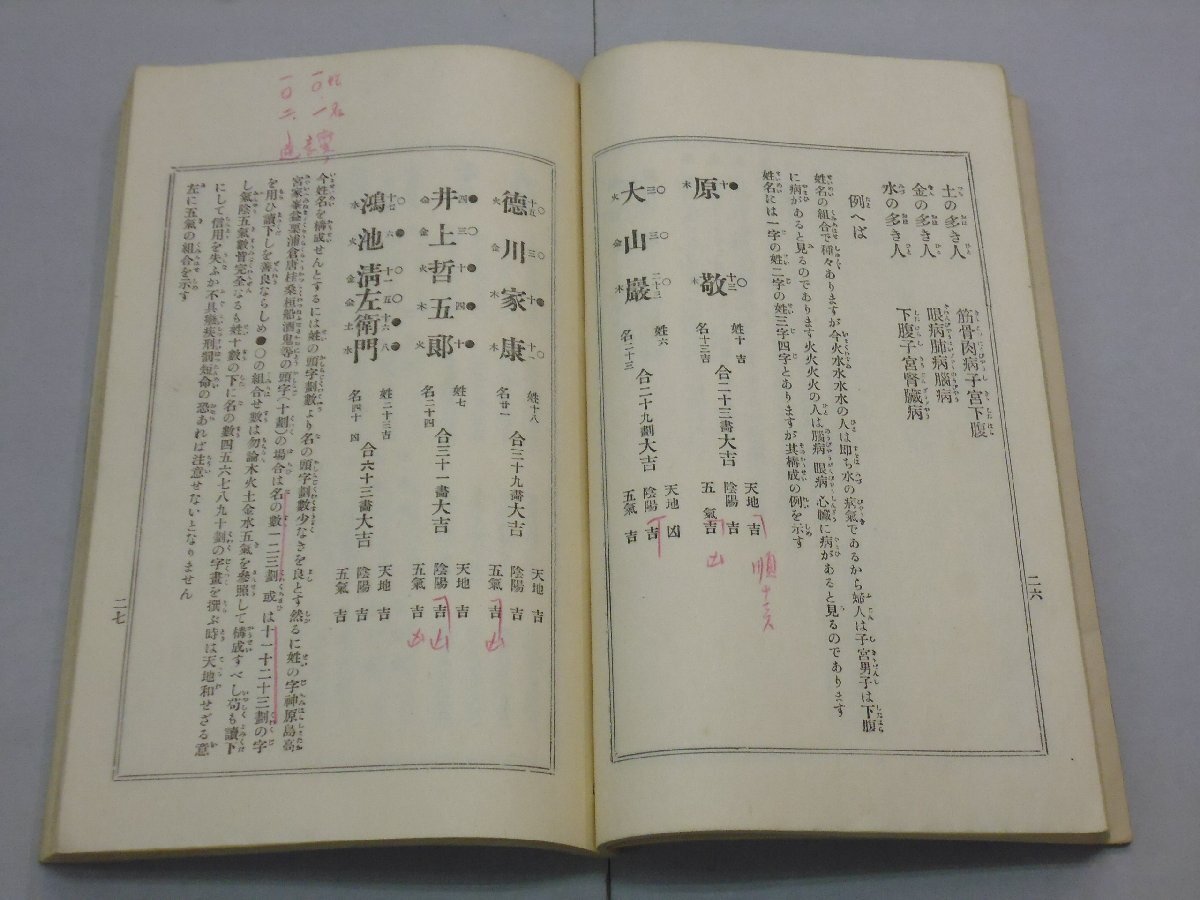 土の多き人　筋骨肉病子宮下腹
金の多き人　眼病肺病腦病
水の多き人　下腹子宮腎臓病
例へば
姓名の組合で種々ありますが今火水水水の人は即ち水の病氣であるから婦人は子宮男子は下腹
に病があると見るのであります火火火火の人は腦病眼病心臓に病があると見るのであります
姓名には一字の姓二字の姓三字四字とありますが其構成の例を示す
●十 原 木
○十三 敬 木
姓十吉
名十三吉
合二十三畵大吉
天地 吉
陰陽 吉
五氣 吉
○三 大 火
○三 山 金
○二十三 巖 木
姓六
名二十三
合二十九劃大吉
天地 凶
陰陽 吉
五氣 吉
二六
德川家康
姓十八
名廿一
合三十九畵大吉
天地 吉
陰陽 吉
五氣 吉
井上哲五郎
姓七
名二十四
合三十一畵大吉
天地 吉
陰陽 吉
五氣 吉
鴻池淸左衛門
姓二十三吉
名四十凶
合六十三畵大吉
天地 吉
陰陽 吉
五氣 吉
今姓名を構成せんとするには姓の頭字劃數より名の頭字劃數少なきを良とす然るに姓の字神原島高
宮家峯益栗浦倉唐桂桑桓船酒鬼等の頭字(十劃)の場合は名の數一二三劃 或は十一十二十三劃の字
を用ひ讀下しを善良ならしめ●○の組合せ數は勿論木火土金水五氣を參照して構成すべし苟も讀下
し氣陰五氣數皆完全なるも姓十數の下に名の數四五六七八九十劃の字畫を撰ぶ時は天地和せざる意
にして信用を失ふか不具癈疾刑罰短命の恐あれば注意せないとなりません
左に五氣の組合を示す
二七